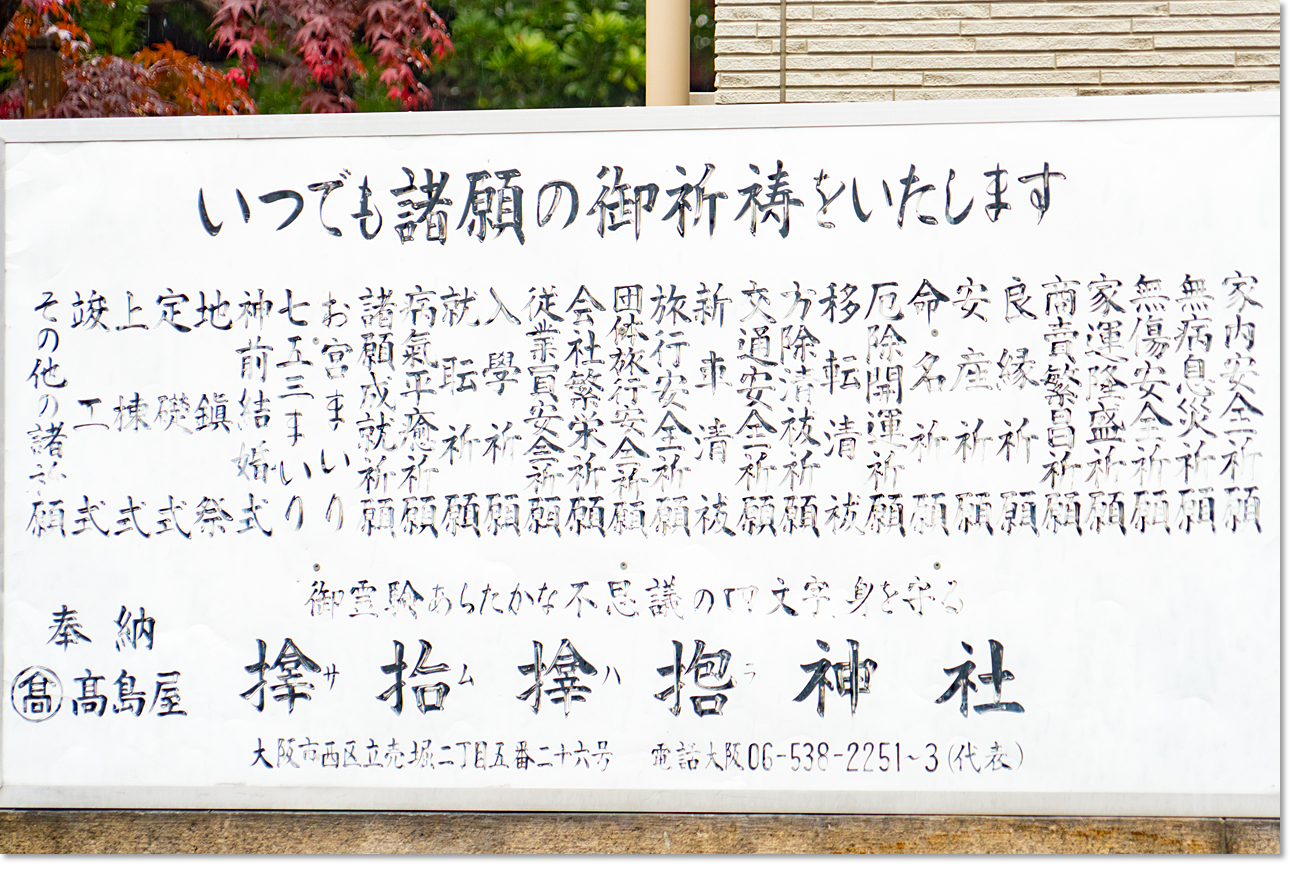 いつでも諸願の御祈祷をいたします
家内安全祈願
無病息災祈願
無傷安全祈願
家運隆盛祈願
商賣繁昌祈願
良縁祈願
安産祈願
命名祈願
厄除開運祈願
移転清祓
方除清祓祈願
交通安全祈願
新車清祓
旅行安全祈願
団体旅行安全祈願
会社繁栄祈願
従業員安全祈願
入學祈願
就転祈願
病氣平癒祈願
諸願成就祈願
お宮まいり
七五三まいり
神前結婚式
地鎮祭
定礎式
上棟式
竣工式
その他の諸祈願
御霊験あらたかな不思議の四文字 身を守る
𪮷サ𫝼ム𪮇ハ𫝹ラ神社
大阪市西区立売堀二丁目五番二十六号 電話大阪06-538-2251~3(代表)
奉納
髙 髙島屋